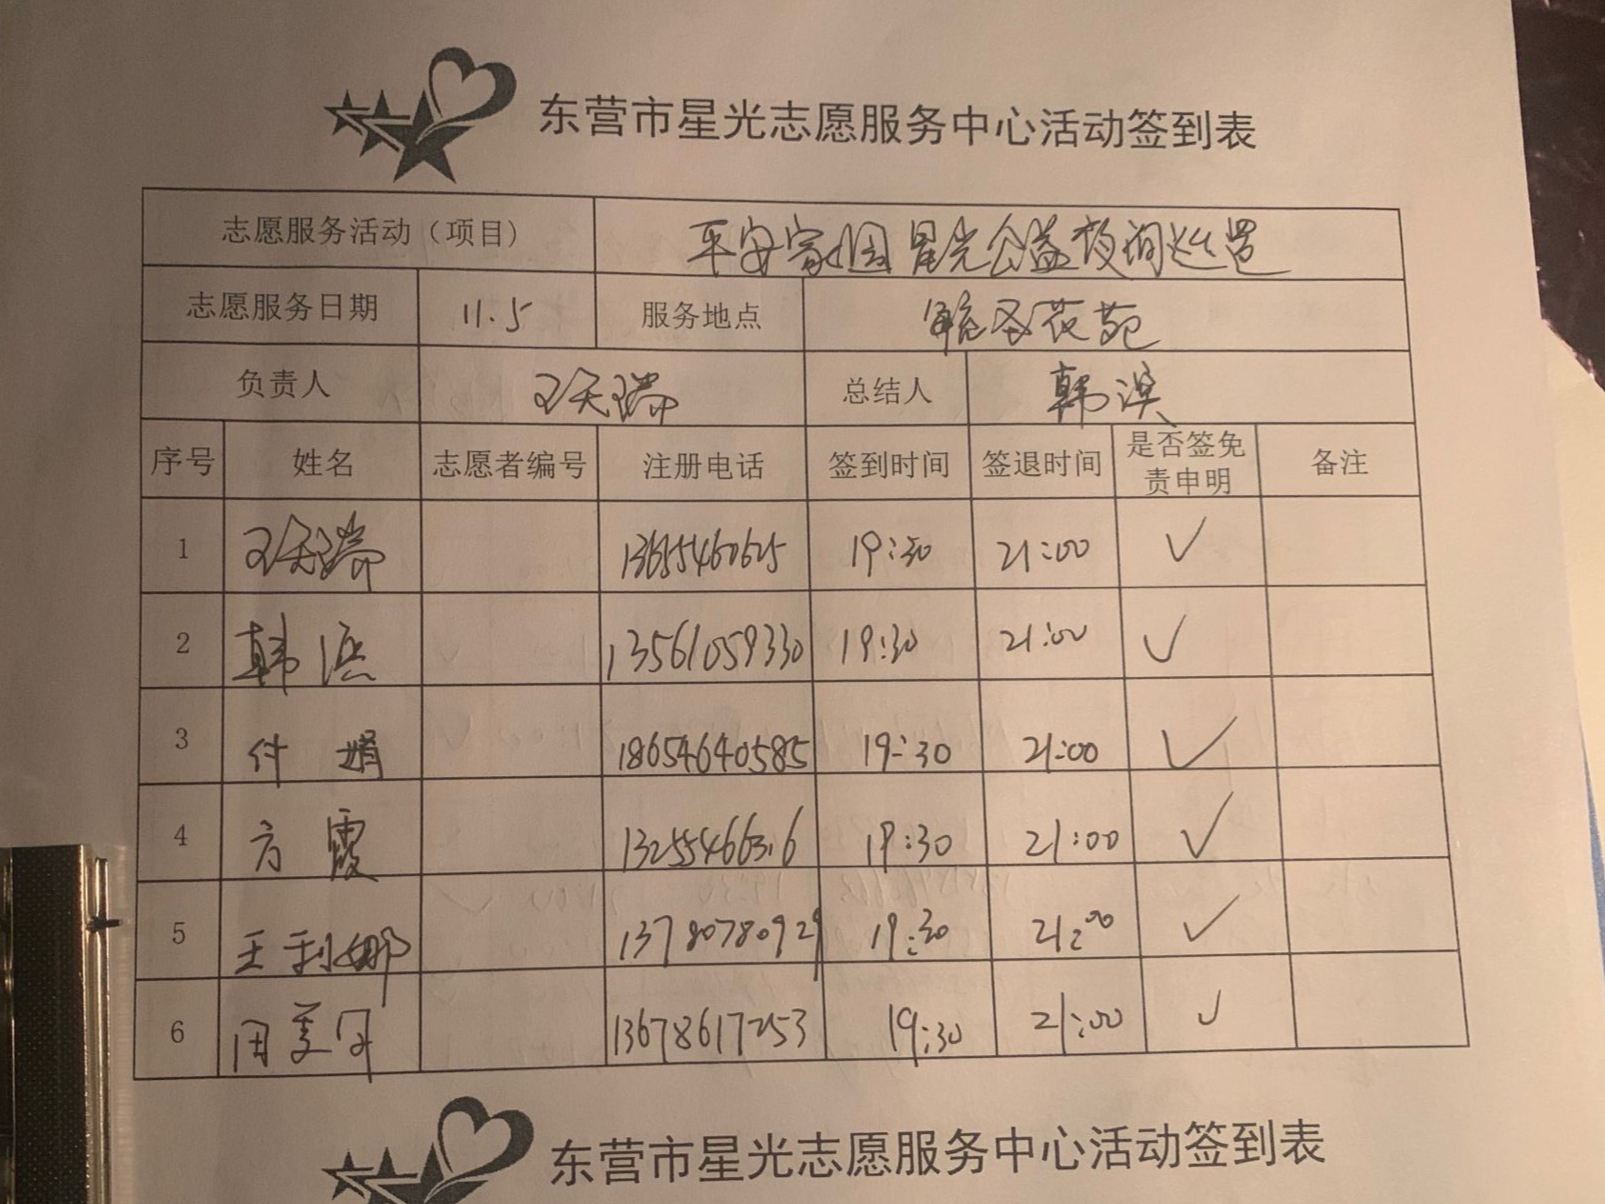 东营市星光志愿服务中心活动签到表
志愿服务活动（项目） 平安家园 星光公益夜间巡逻
志愿服务日期 11.5 服务地点 花苑
负责人 王天瑞 总结人 韩滨
序号 姓名 志愿者编号 注册电话 签到时间 签退时间 是否签免责申明 备注
1 王天瑞 19:30 21:00 ✓
2 韩滨 13561059330 19:30 21:00 ✓
3 付娟 18654640585 19:30 21:00 ✓
4 方霞 19:30 21:00 ✓
5 王利娜 13780780929 19:30 21:00 ✓
6 周美月 13678617253 19:30 21:00 ✓
东营市星光志愿服务中心活动签到表